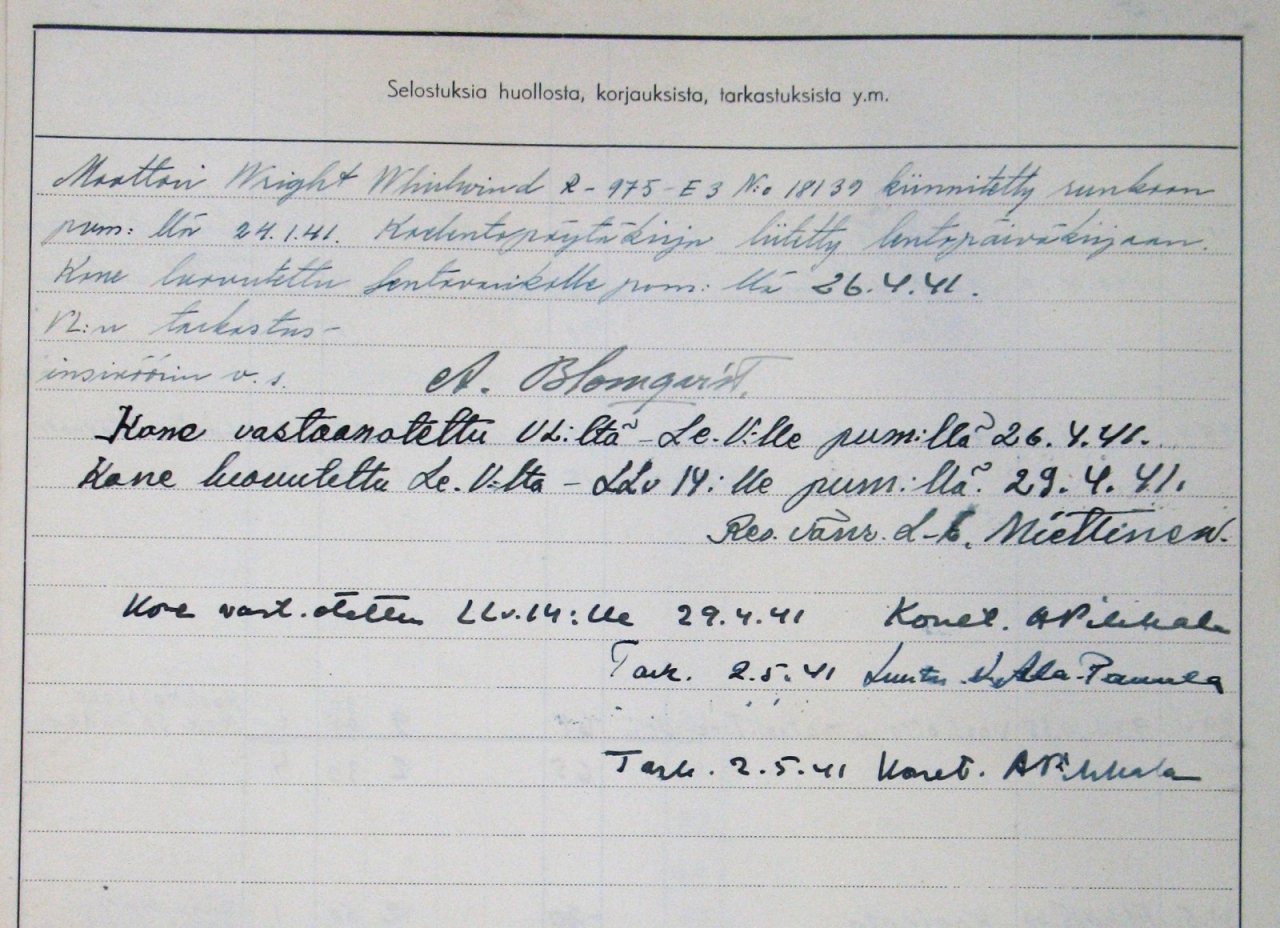 Selostuksia huollosta, korjauksista, tarkastuksista y.m.
Moottori Wright Whirlwind R-975-E3 N:o 18139 kiinnitetty runkoon
pvm: llä 24.1.41. Koelentopöytäkirja liitetty lentopäiväkirjaan.
Kone luovutettu Lentovarikolle pvm: llä 26.4.41.
VL:n tarkastus-
insinöörin v.s. A. Blomqvist.
Kone vastaanotettu VL:ltä - Le.V:lle pvm:llä 26.4.41.
Kone luovutettu Le.V:lta - LLv 14:lle pvm:llä. 29.4.41.
Res. vänr. L-E. Miettinen.
Kone vast.otettu LLv.14:lle 29.4.41 Konet. A Pihkala
Tark. 2.5.41 Luutn. Ala-Panula
Tark. 2.5.41 Konet. A Pihkala